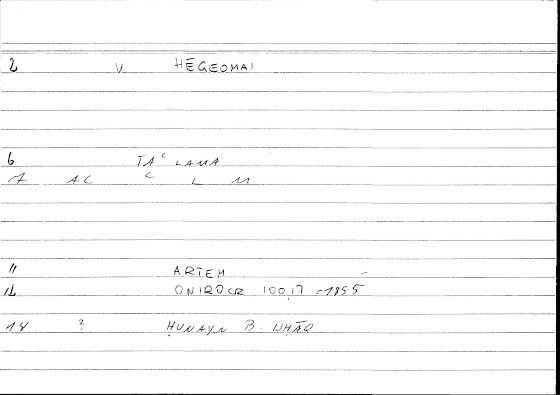 2 V HĒGEOMAI
6 TAᶜLAMA
7 AC ᶜ L M
11 ARTEM
12 ONIROCR 100,17 =185.5
14 2 ḤUNAYN B.